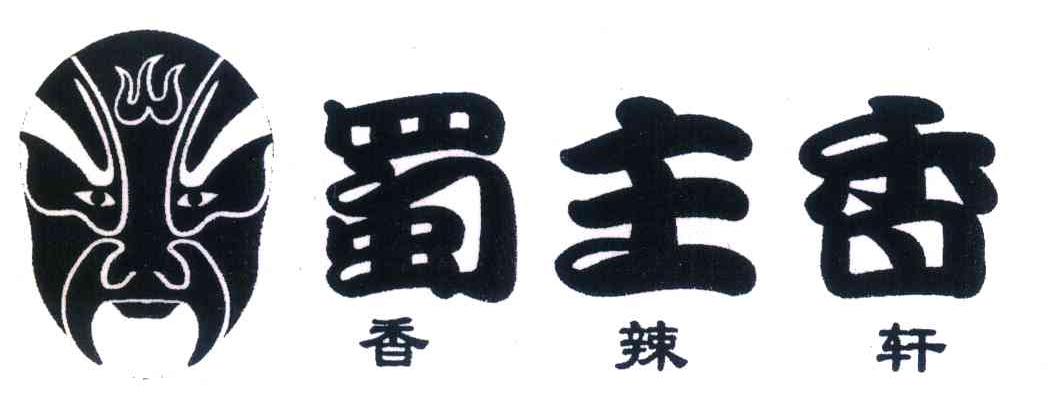 蜀主香
香辣轩